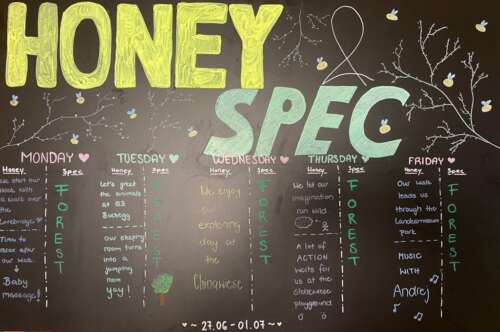 HONEY
&
SPEC
SPEC
MONDAY
Honey
We start our
week with
a walk over
the
Time to
relax after
our walk.
Baby
massage!
Spec
FOREST
TUESDAY
Honey
Let's greet
the animals
at GZ
Buchegg
Our exploring
room turns
into a
jumping
room
yay!
Spec
FOREST
WEDNESDAY
Honey
We enjoy
our
exploring
day at
the
Chinawiese
Spec
FOREST
THURSDAY
Honey
We let our
imagination
run wild
A lot of
ACTION
waits for
us at the
playground
Spec
FOREST
FRIDAY
Honey
Our walk
leads us
through the
Landenmuseum
park.
MUSIC
WITH
Andrej
Spec
FOREST
~ 27.06 - 01.07 ~